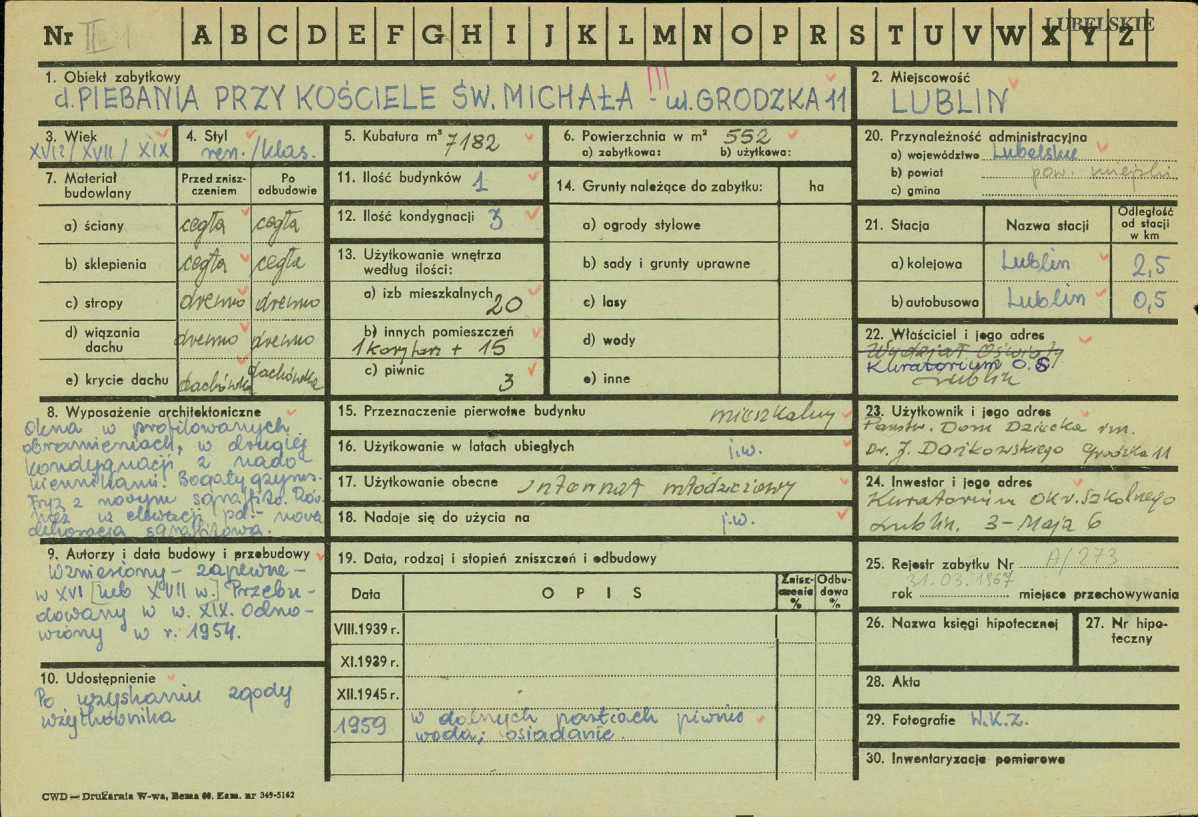 Nr III 1 A B C D E F G H I J K L M N O P R S T U V W X Y Z LUBELSKIE
1. Obiekt zabytkowy
d. PLEBANIA PRZY KOŚCIELE ŚW. MICHAŁA - ul. GRODZKA 11
III
2. Miejscowość
LUBLIN
3. Wiek
XVI?/XVII/XIX
4. Styl
ren./klas.
5. Kubatura m³ 7182
6. Powierzchnia w m² 552
a) zabytkowa: b) użytkowa:
7. Materiał budowlany
Przed zniszczeniem
Po odbudowie
a) ściany cegła cegła
b) sklepienia cegła cegła
c) stropy drewno drewno
d) wiązania dachu drewno drewno
e) krycie dachu dachówka dachówka
8. Wyposażenie architektoniczne
Okna w profilowanych
obramieniach, w drugiej
kondygnacji z nado
kiennikami. Bogaty gzyms.
Fryz z nowym sgrafito. Rów
nież w elewacji pd. - nowa
dekoracja sgrafitowa.
9. Autorzy i data budowy i przebudowy
Wzniesiony - zapewne -
w XVI [lub XVII w.] Przebu-
dowany w w. XIX. Odno-
wiony w r. 1954.
10. Udostępnienie
Po uzyskaniu zgody
użytkownika
11. Ilość budynków 1
12. Ilość kondygnacji 3
13. Użytkowanie wnętrza
według ilości:
a) izb mieszkalnych 20
b) innych pomieszczeń
1 koryt + 15
c) piwnic 3
14. Grunty należące do zabytku: ha
a) ogrody stylowe
b) sady i grunty uprawne
c) lasy
d) wody
e) inne
15. Przeznaczenie pierwotne budynku mieszkalny
16. Użytkowanie w latach ubiegłych j.w.
17. Użytkowanie obecne internat młodzieżowy
18. Nadaje się do użycia na j.w.
19. Data, rodzaj i stopień zniszczeń i odbudowy
Data
OPIS
Zniszczenie %
Odbudowa %
VIII.1939 r.
XI.1939 r.
XII.1945 r.
1959 w dolnych partiach piwnic
woda; osiadanie.
20. Przynależność administracyjna
a) województwo Lubelskie
b) powiat pow. miejski
c) gmina
21. Stacja
Nazwa stacji
Odległość od stacji w km
a) kolejowa Lublin 2,5
b) autobusowa Lublin 0,5
22. Właściciel i jego adres
Wydział Oświaty
Kuratorium O.S
Lublin
23. Użytkownik i jego adres
Państw. Dom Dziecka im.
Dr. J. Dańkowskiego Grodzka 11
24. Inwestor i jego adres
Kuratorium Okr. Szkolnego
Lublin. 3-Maja 6
25. Rejestr zabytku Nr A/273
31.03.1967
rok miejsce przechowywania
26. Nazwa księgi hipotecznej
27. Nr hipoteczny
28. Akta
29. Fotografie W.K.Z.
30. Inwentaryzacja pomiarowa
CWD — Drukarnia W-wa, Bema 60. Zam. nr 349-5162